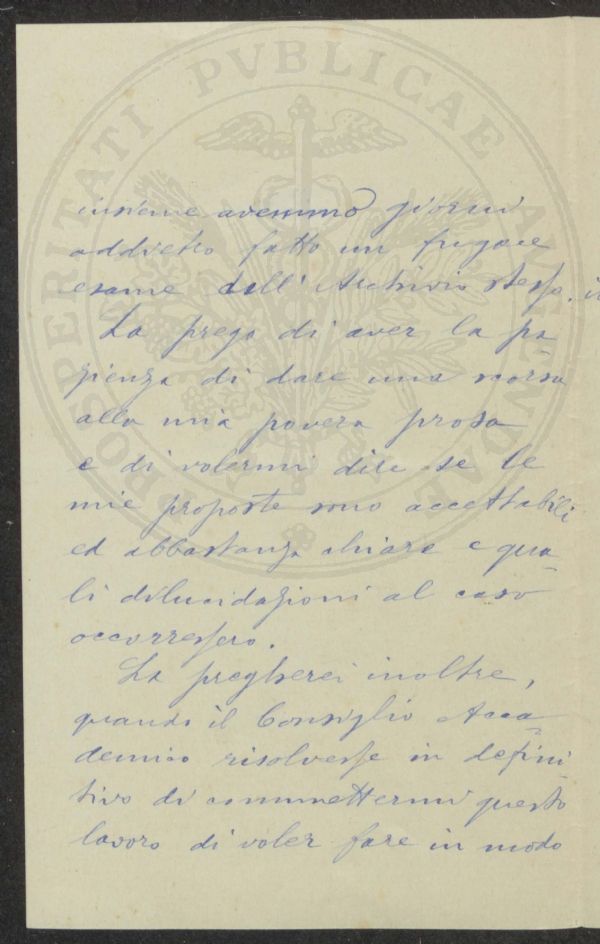 PROSPERITATI PVBLICAE AVGENDAE
insieme avemmo giorni
addietro fatto un fugace
esame dell' Archivio stesso.
La prego di aver la pa-
zienza di dare una scorsa
alla mia povera prosa
e di volermi dire se le
mie proposte sono accettabili
ed abbastanza chiare e qua-
li dilucidazioni al caso
occorressero.
La pregherei inoltre,
quando il Consiglio Acca-
demico risolvesse in defini-
tivo di commettermi questo
lavoro di voler fare in modo